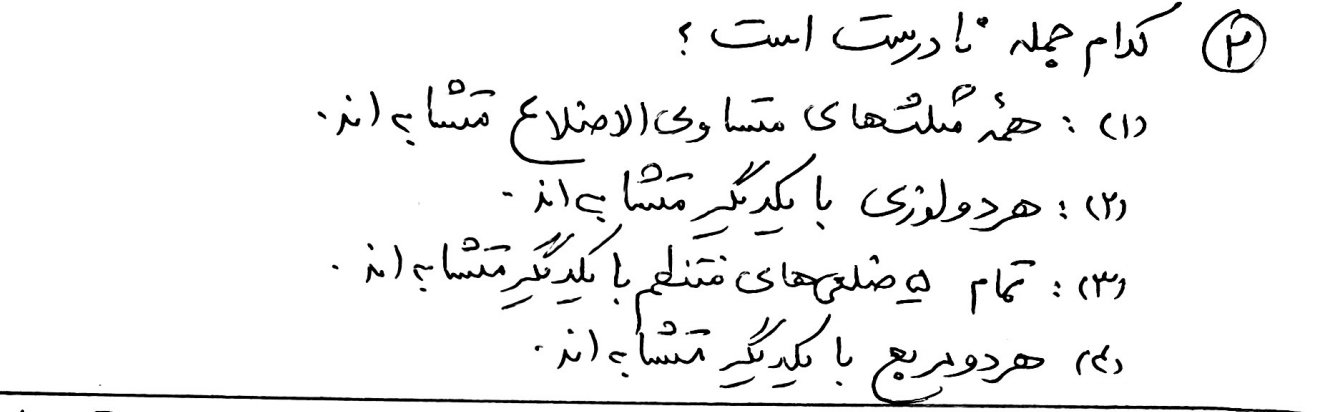 ۲ کدام جمله نادرست است ؟
(۱) : همهٔ مثلث‌های متساوی الاضلاع متشابه‌اند.
(۲) : هر دو لوزی با یکدیگر متشابه‌اند.
(۳) : تمام ۵ ضلعی‌های منتظم با یکدیگر متشابه‌اند.
(۴) هر دو مربع با یکدیگر متشابه‌اند.